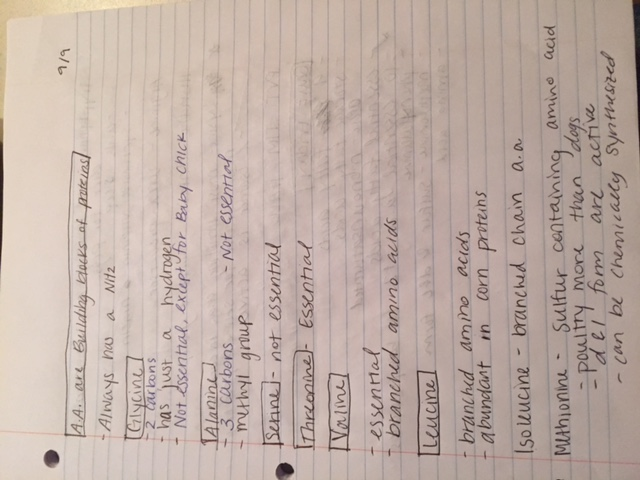 9/9
A.A. are Building blocks of proteins
- Always has a NH2
Glycine
- 2 carbons
- has just a hydrogen
- Not essential, except for Baby chick
Alanine
- 3 carbons - Not essential
- methyl group
Serine - not essential
Threonine - Essential
Valine
- essential
- branched amino acids
Leucine
- branched amino acids
- abundant in corn proteins
Isoleucine - branched chain a.a.
Methionine - Sulfur containing amino acid
- poultry more than dogs
- d & l form are active
- can be chemically synthesized